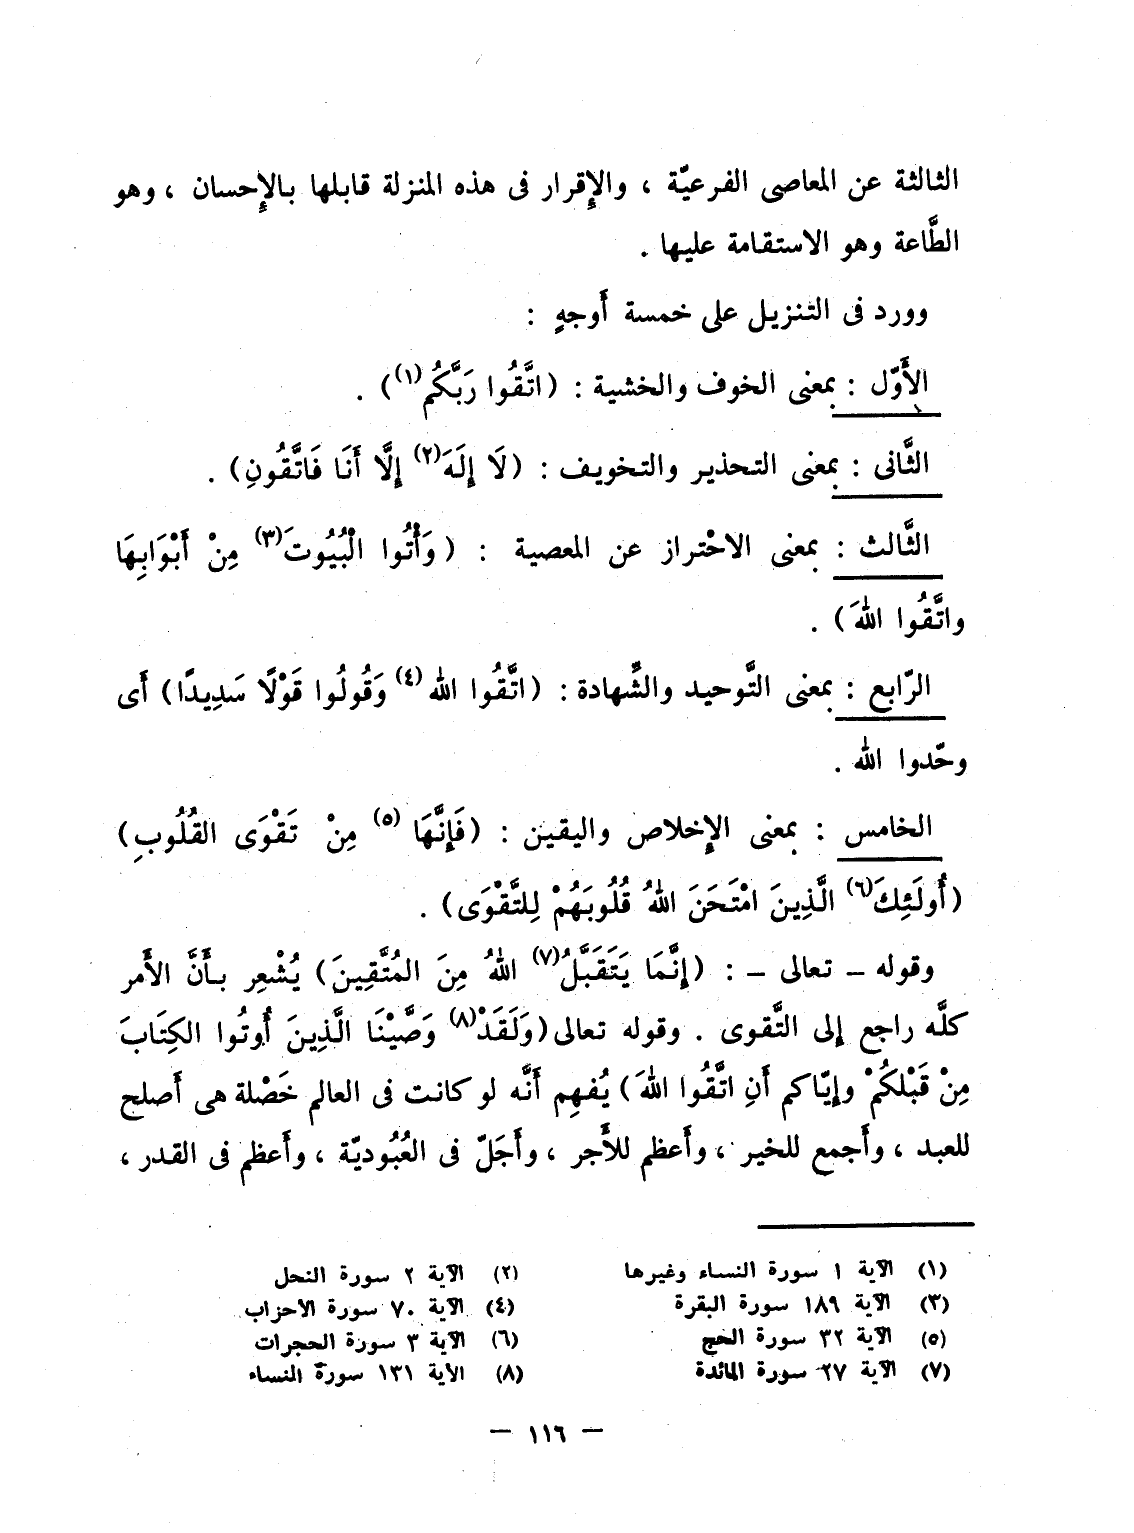 الثالثة عن المعاصى الفرعيّة ، والإِقرار فى هذه المنزلة قابلها بالإِحسان ، وهو
الطَّاعة وهو الاستقامة عليها .
وورد فى التنزيل على خمسة أَوجهٍ :
الأَوّل : بمعنى الخوف والخشية : (اتَّقُوا رَبَّكُم(١)) .
الثَّانى : بمعنى التحذير والتخويف : (لَا إِلَهَ(٢) إِلَّا أَنَا فَاتَّقُونِ) .
الثَّالث : بمعنى الاحْتراز عن المعصية : (وَأْتُوا الْبُيُوتَ(٣) مِنْ أَبْوَابِهَا
واتَّقُوا اللهَ) .
الرّابع : بمعنى التَّوحيد والشَّهادة : (اتَّقُوا الله(٤) وَقُولُوا قَوْلًا سَدِيدًا) أَى
وحّدوا الله .
الخامس : بمعنى الإِخلاص واليقين : (فَإِنَّهَا (٥) مِنْ تَقْوَى القُلُوبِ)
(أُولَئِكَ(٦) الَّذِينَ امْتَحَنَ اللهُ قُلُوبَهُمْ لِلتَّقْوَى) .
وقوله – تعالى – : (إِنَّمَا يَتَقَبَّلُ(٧) اللهُ مِنَ المُتَّقِينَ) يُشْعِر بأَنَّ الأَمر
كلَّه راجع إِلى التَّقوى . وقوله تعالى (وَلَقَدْ(٨) وَصَّيْنَا الَّذِينَ أُوتُوا الكِتَابَ
مِنْ قَبْلكُمْ وإِيّاكم أَنِ اتَّقُوا اللهَ) يُفهِم أَنَّه لو كانت فى العالم خَصْلة هى أَصلح
للعبد ، وأَجمع للخير ، وأَعظم للأَجر ، وأَجَلّ فى العُبُوديّة ، وأَعظم فى القدر ،
(١) الآية ١ سورة النساء وغيرها (٢) الآية ٢ سورة النحل
(٣) الآية ١٨٩ سورة البقرة (٤) الآية ٧٠ سورة الاحزاب
(٥) الآية ٣٢ سورة الحج (٦) الآية ٣ سورة الحجرات
(٧) الآية ٢٧ سورة المائدة (٨) الآية ١٣١ سورة النساء
– ١١٦ –